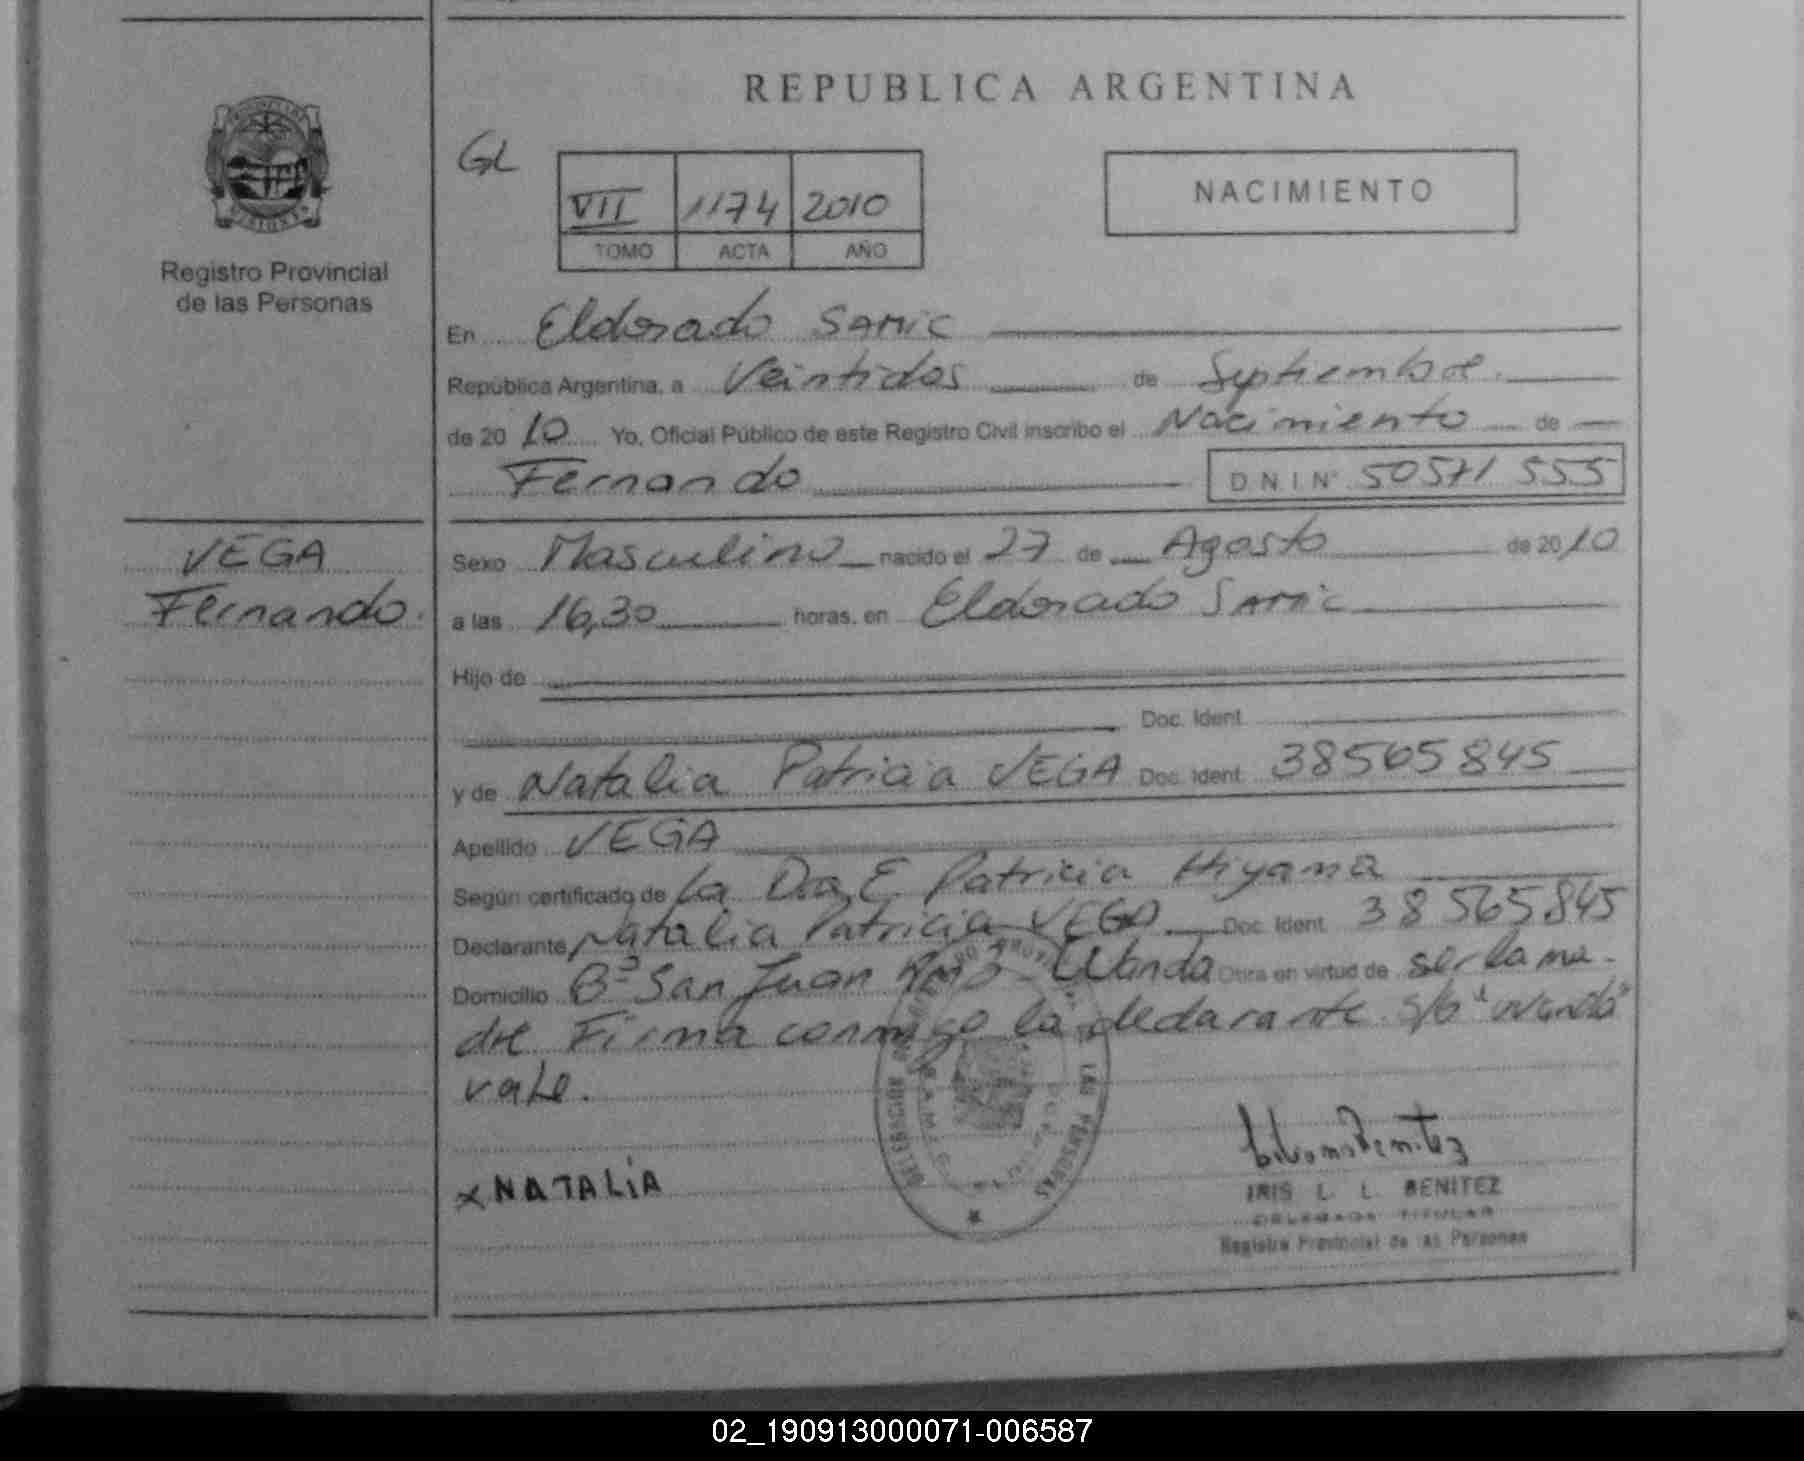 REPUBLICA ARGENTINA
GL
VII 1174 2010
TOMO ACTA AÑO
NACIMIENTO
Registro Provincial
de las Personas
En Eldorado SAMIC
República Argentina, a Veintidos de Septiembre
de 20 10 Yo, Oficial Público de este Registro Civil inscribo el Nacimiento de
Fernando D.N.I Nº 50571 555
VEGA
Fernando.
Sexo Masculino nacido el 27 de Agosto de 20 10
a las 16,30 horas, en Eldorado SAMIC
Hijo de
Doc. Ident.
y de Natalia Patricia VEGA Doc. Ident. 38565845
Apellido VEGA
Según certificado de La Dra E. Patricia Hiyama
Declarante Natalia Patricia VEGA Doc. Ident. 38565845
Domicilio Bº San Juan Wanda Obra en virtud de ser la ma-
dre Firma conmigo la declarante s/b "Wanda"
vale.
DELEGACION
LAS PERSONAS
x NATALIA
IRIS L. L. BENITEZ
DELEGADA TITULAR
Registro Provincial de las Personas
02_190913000071-006587